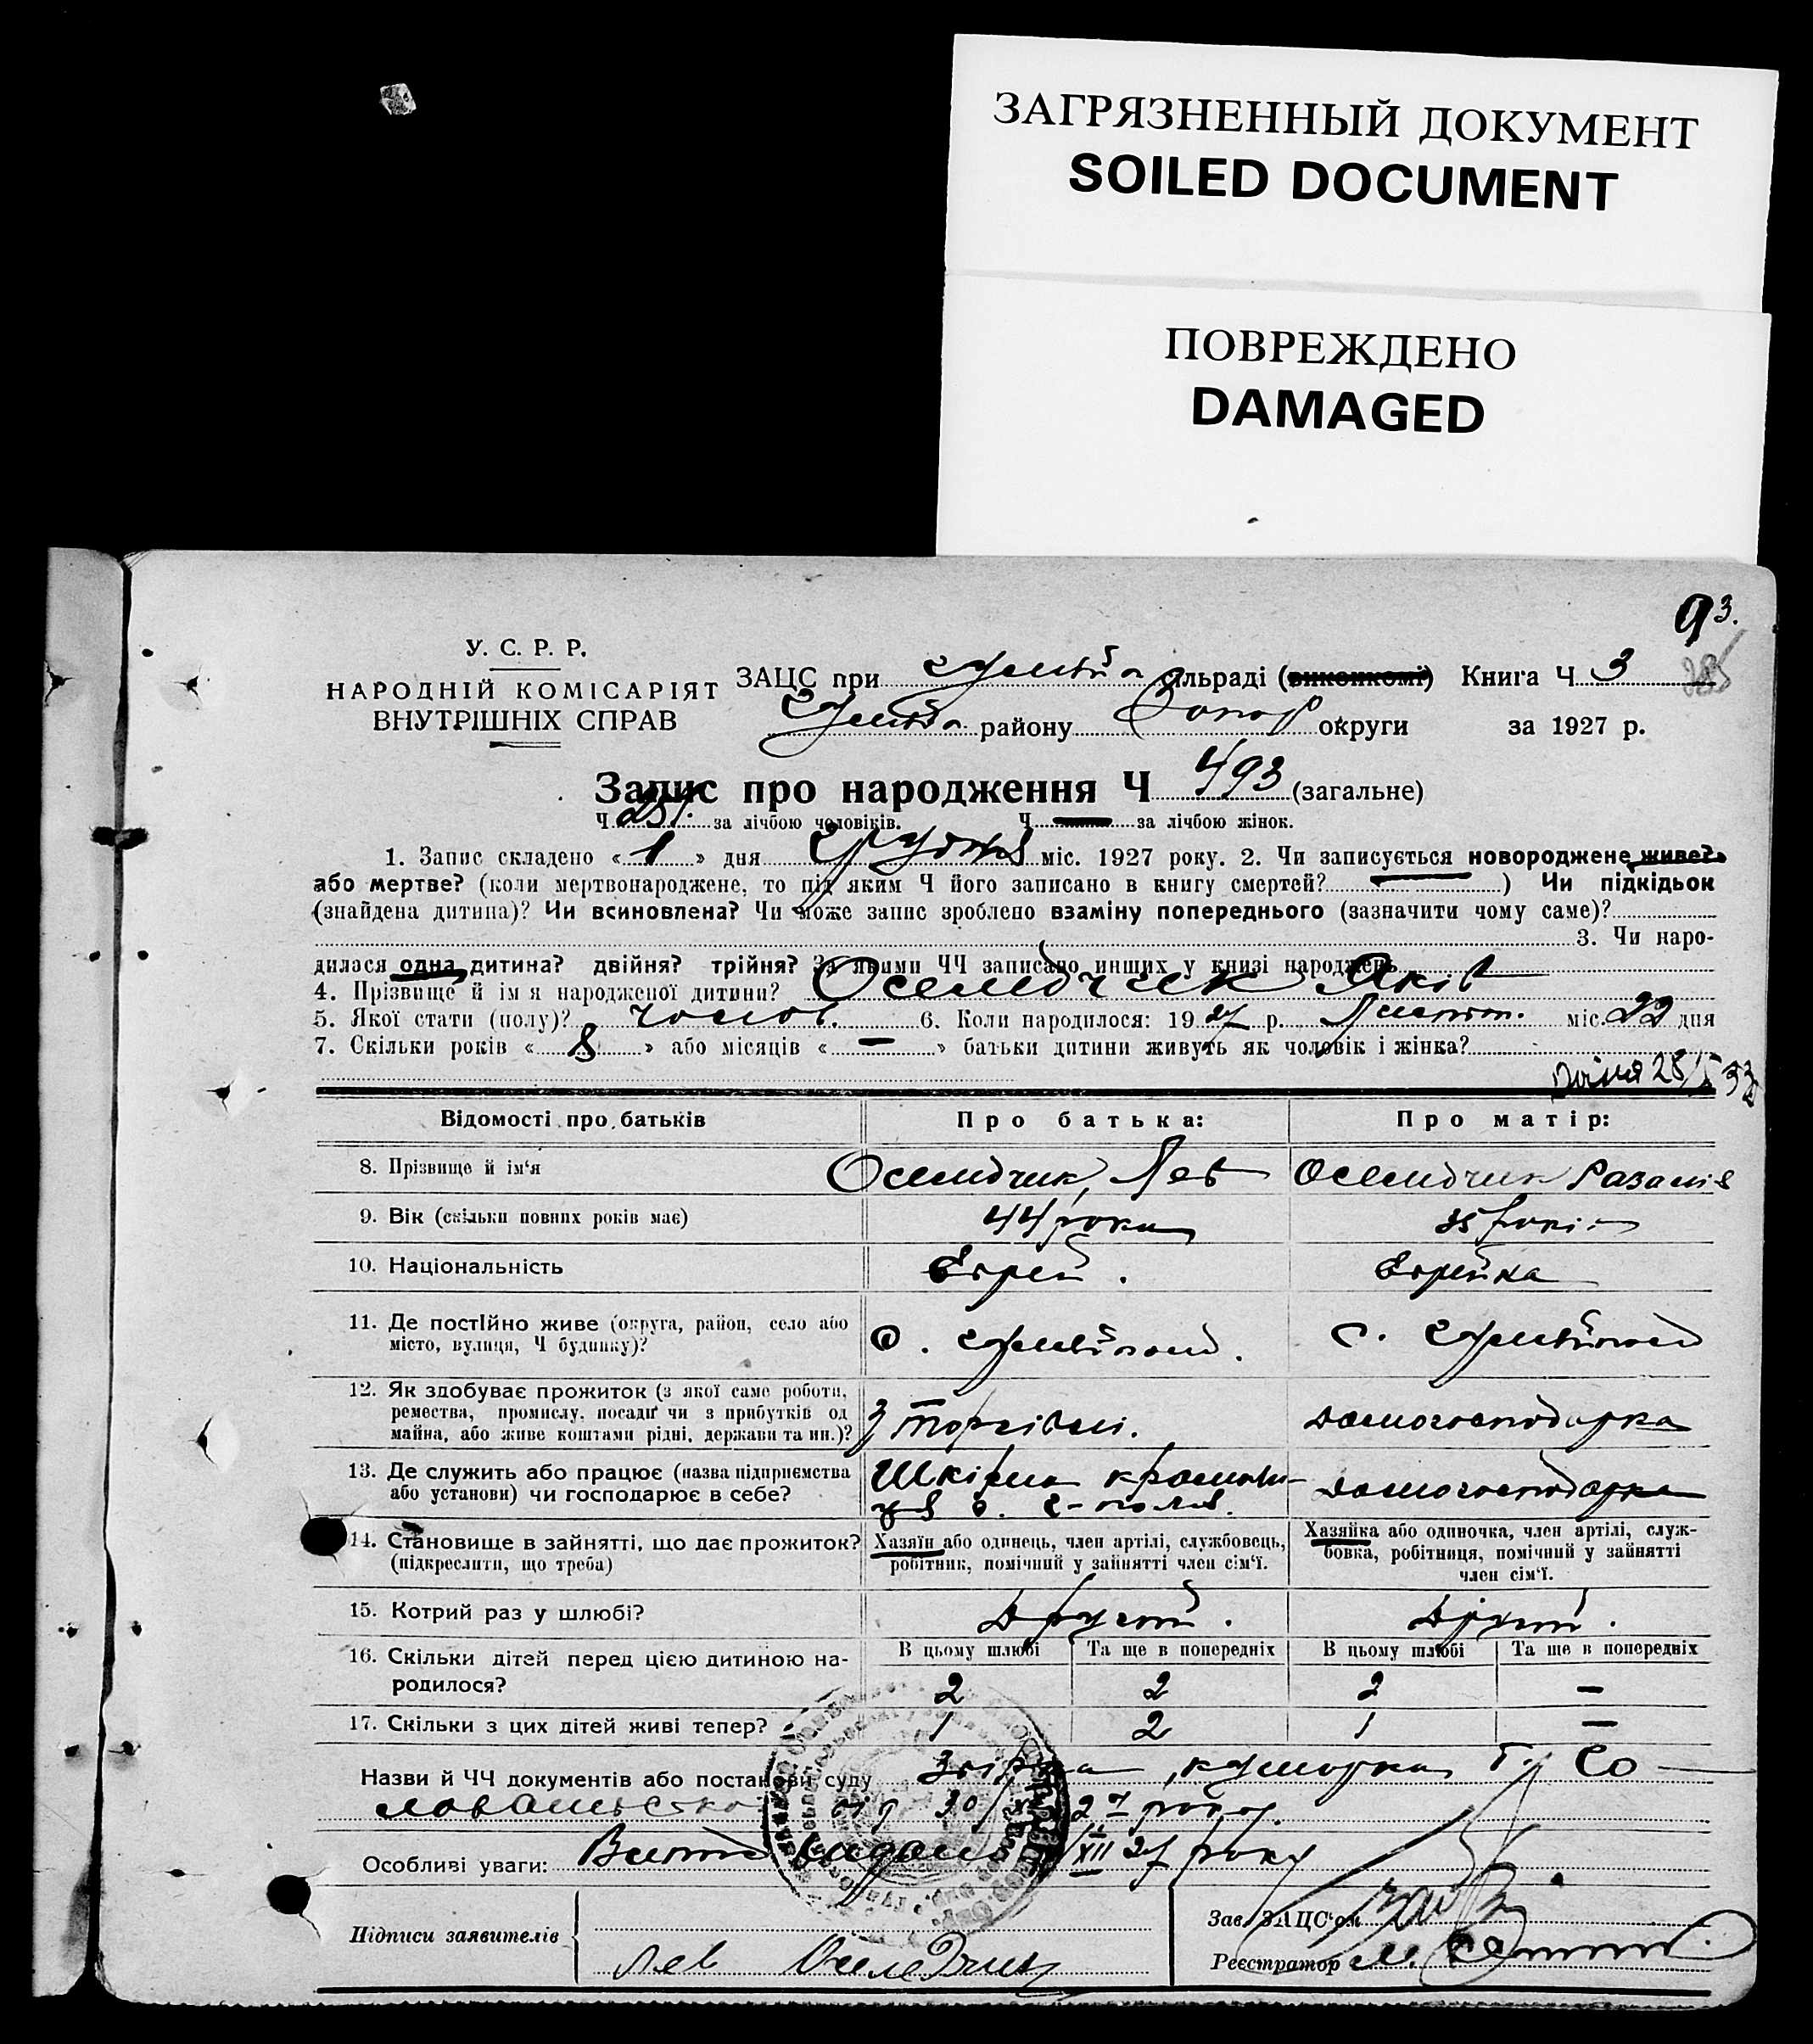 ЗАГРЯЗНЕННЫЙ ДОКУМЕНТ
SOILED DOCUMENT
ПОВРЕЖДЕНО
DAMAGED
93.
У. С. Р. Р.
НАРОДНІЙ КОМІСАРІЯТ
ВНУТРІШНІХ СПРАВ
ЗАЦС при сільраді (виконкомі) Книга Ч 3
району Запор округи за 1927 р.
Запис про народження Ч 493 (загальне)
Ч 251. за лічбою чоловіків. Ч — за лічбою жінок.
1. Запис складено « 1 » дня грудня міс. 1927 року. 2. Чи записується новороджене живе?
або мертве? (коли мертвонароджене, то під яким Ч його записано в книгу смертей? — ) Чи підкідьок
(знайдена дитина)? Чи всиновлена? Чи може запис зроблено взаміну попереднього (зазначити чому саме)?
3. Чи наро-
дилася одна дитина? двійня? трійня? За якими ЧЧ записано инших у книзі народжень —
4. Прізвище й ім'я народженої дитини? Оселидчик Яків
5. Якої стати (полу)? чолов. 6. Коли народилося: 1927 р. Листоп. міс. 22 дня
7. Скільки років « 8 » або місяців « — » батьки дитини живуть як чоловік і жінка?
Відомості про батьків Про батька: Про матір:
8. Прізвище й ім'я Оселидчик, Лев Оселидчик Розалія
9. Вік (скільки повних років має) 44 роки 35 років
10. Національність Єврей. Єврейка
11. Де постійно живе (округа, район, село або
місто, вулиця, Ч будинку)?
12. Як здобуває прожиток (з якої саме роботи,
ремества, промислу, посади чи з прибутків од
майна, або живе коштами рідні, держави та ин.)? З торгівлі. домогосподарка
13. Де служить або працює (назва підприємства
або установи) чи господарює в себе? домогосподарка
14. Становище в зайнятті, що дає прожиток?
(підкреслити, що треба)
Хазяїн або одинець, член артілі, службовець,
робітник, помічний у зайнятті член сім'ї.
Хазяйка або одиночка, член артілі, служ-
бовка, робітниця, помічний у зайнятті
член сім'ї.
15. Котрий раз у шлюбі? Другий. Другий.
16. Скільки дітей перед цією дитиною на-
родилося?
В цьому шлюбі Та ще в попередніх В цьому шлюбі Та ще в попередніх
2 2 2 —
17. Скільки з цих дітей живі тепер? 1 2 1 —
Назви й ЧЧ документів або постанови суду
від 30/XI 27 року.
Особливі уваги: Витяг видано 1/XII 27 року
Підписи заявителів
Лев Оселедчик
Зав. ЗАЦС'ом
Реєстратор